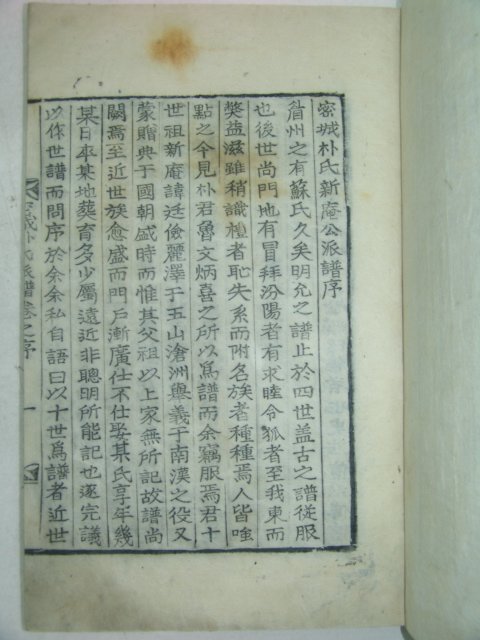 密城朴氏新庵公派譜序
眉州之有蘇氏久矣明允之譜止於四世盖古之譜從服
也後世尚門地有冒拜汾陽者有求睦令狐者至我東而
獘益滋雖稍識禮者恥失系而附名族者種種焉人皆唫
點之今見朴君魯文炳喜之所以爲譜而余竊服焉君十
世祖新庵諱廷儉麗澤于玉山滄洲舉義于南漢之役又
蒙贈典于國朝盛時而惟其父祖以上家無所記故譜尚
闕焉至近世族愈盛而門戶漸廣仕不仕娶某氏享年幾
某日卒某地葬育多少屬遠近非聰明所能記也遂完議
以作世譜而問序於余余私自語曰以十世爲譜者近世
密城朴氏派譜卷之序
一